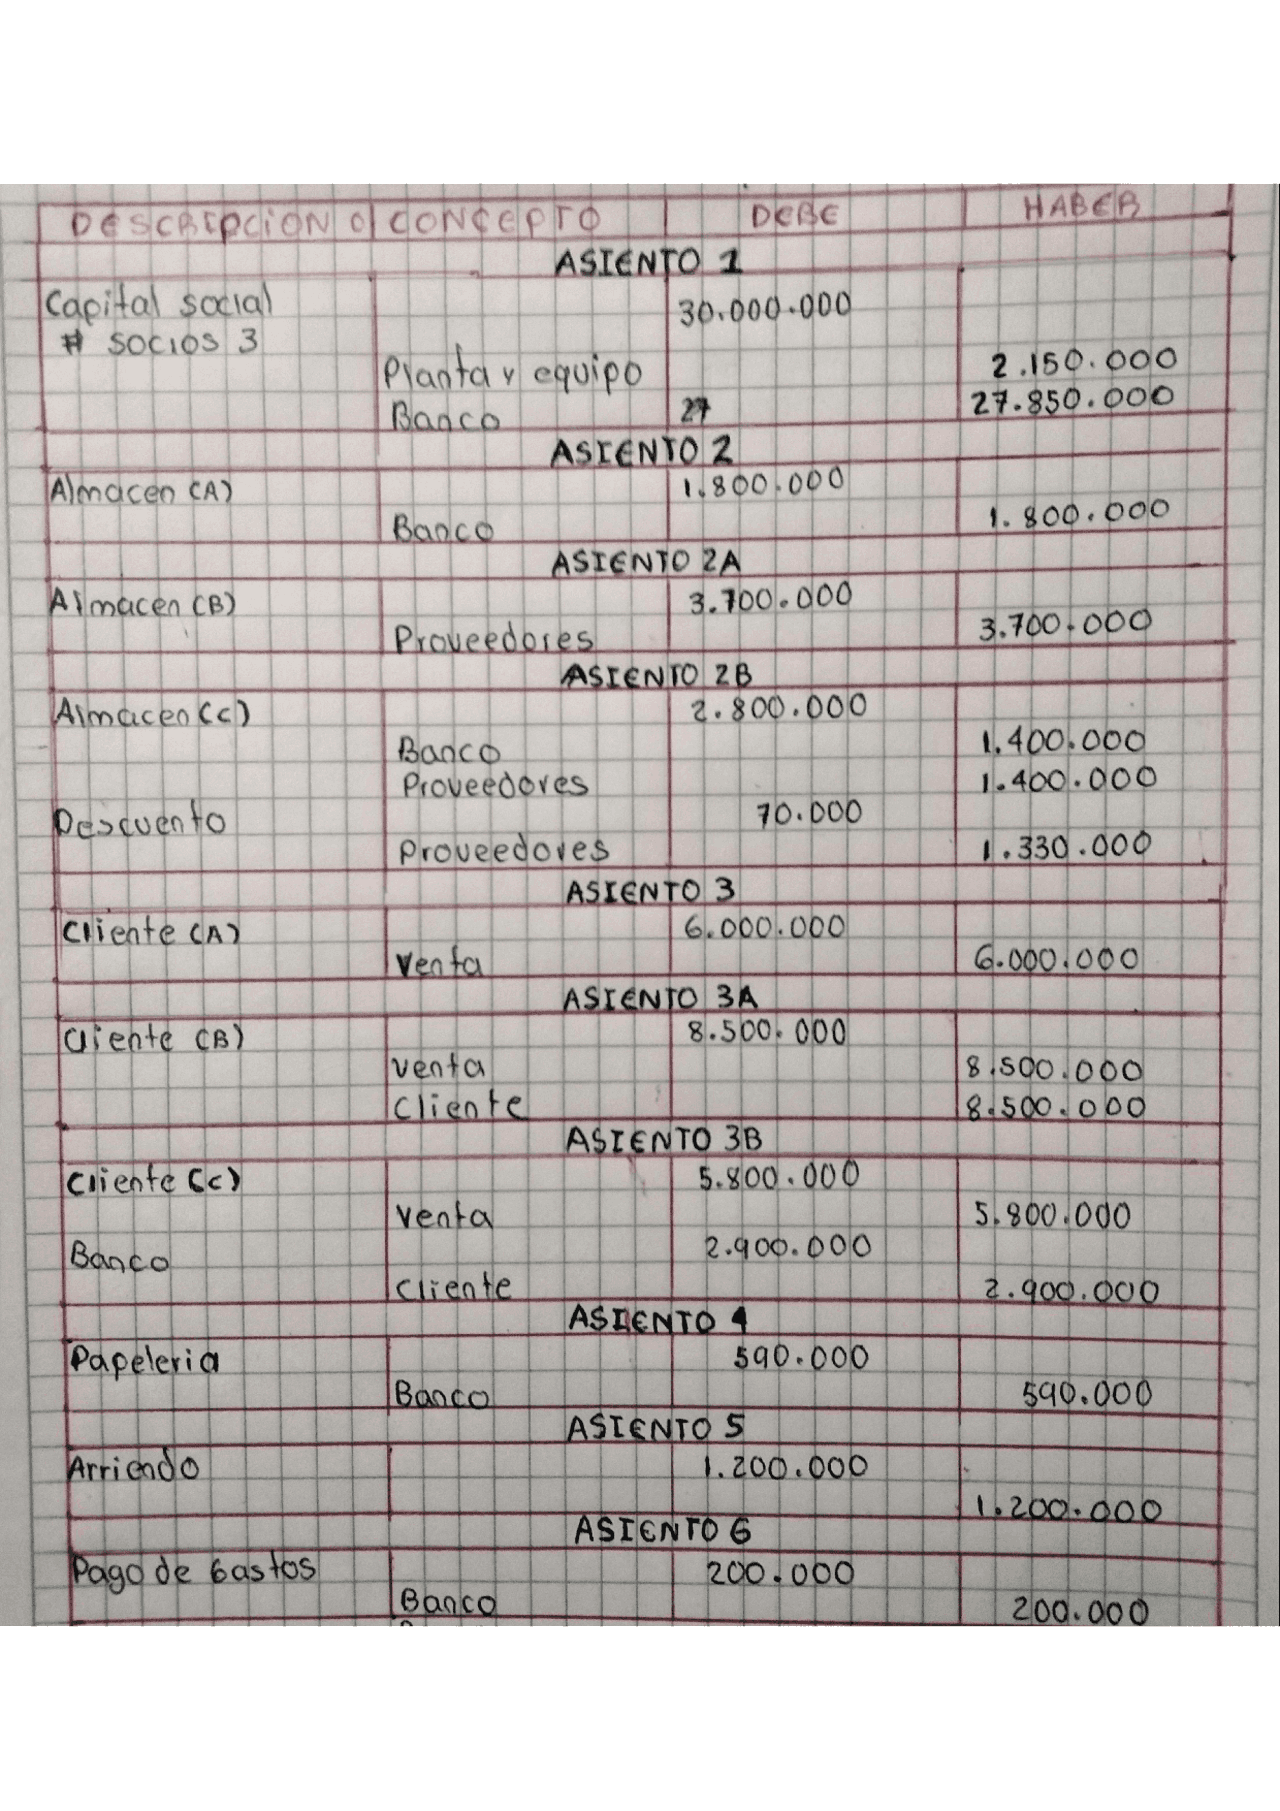 DESCRIPCION O CONCEPTO DEBE HABER
ASIENTO 1
Capital social 30.000.000
# SOCIOS 3
Planta y equipo 2.150.000
Banco 27 27.850.000
ASIENTO 2
Almacen (A) 1.800.000
Banco 1.800.000
ASIENTO 2A
Almacen (B) 3.700.000
Proveedores 3.700.000
ASIENTO 2B
Almacen (C) 2.800.000
Banco 1.400.000
Proveedores 1.400.000
Descuento 70.000
Proveedores 1.330.000
ASIENTO 3
Cliente (A) 6.000.000
Venta 6.000.000
ASIENTO 3A
Cliente (B) 8.500.000
Venta 8.500.000
Cliente 8.500.000
ASIENTO 3B
Cliente (C) 5.800.000
Venta 5.800.000
Banco 2.900.000
Cliente 2.900.000
ASIENTO 4
Papeleria 590.000
Banco 590.000
ASIENTO 5
Arriendo 1.200.000
1.200.000
ASIENTO 6
Pago de Gastos 200.000
Banco 200.000